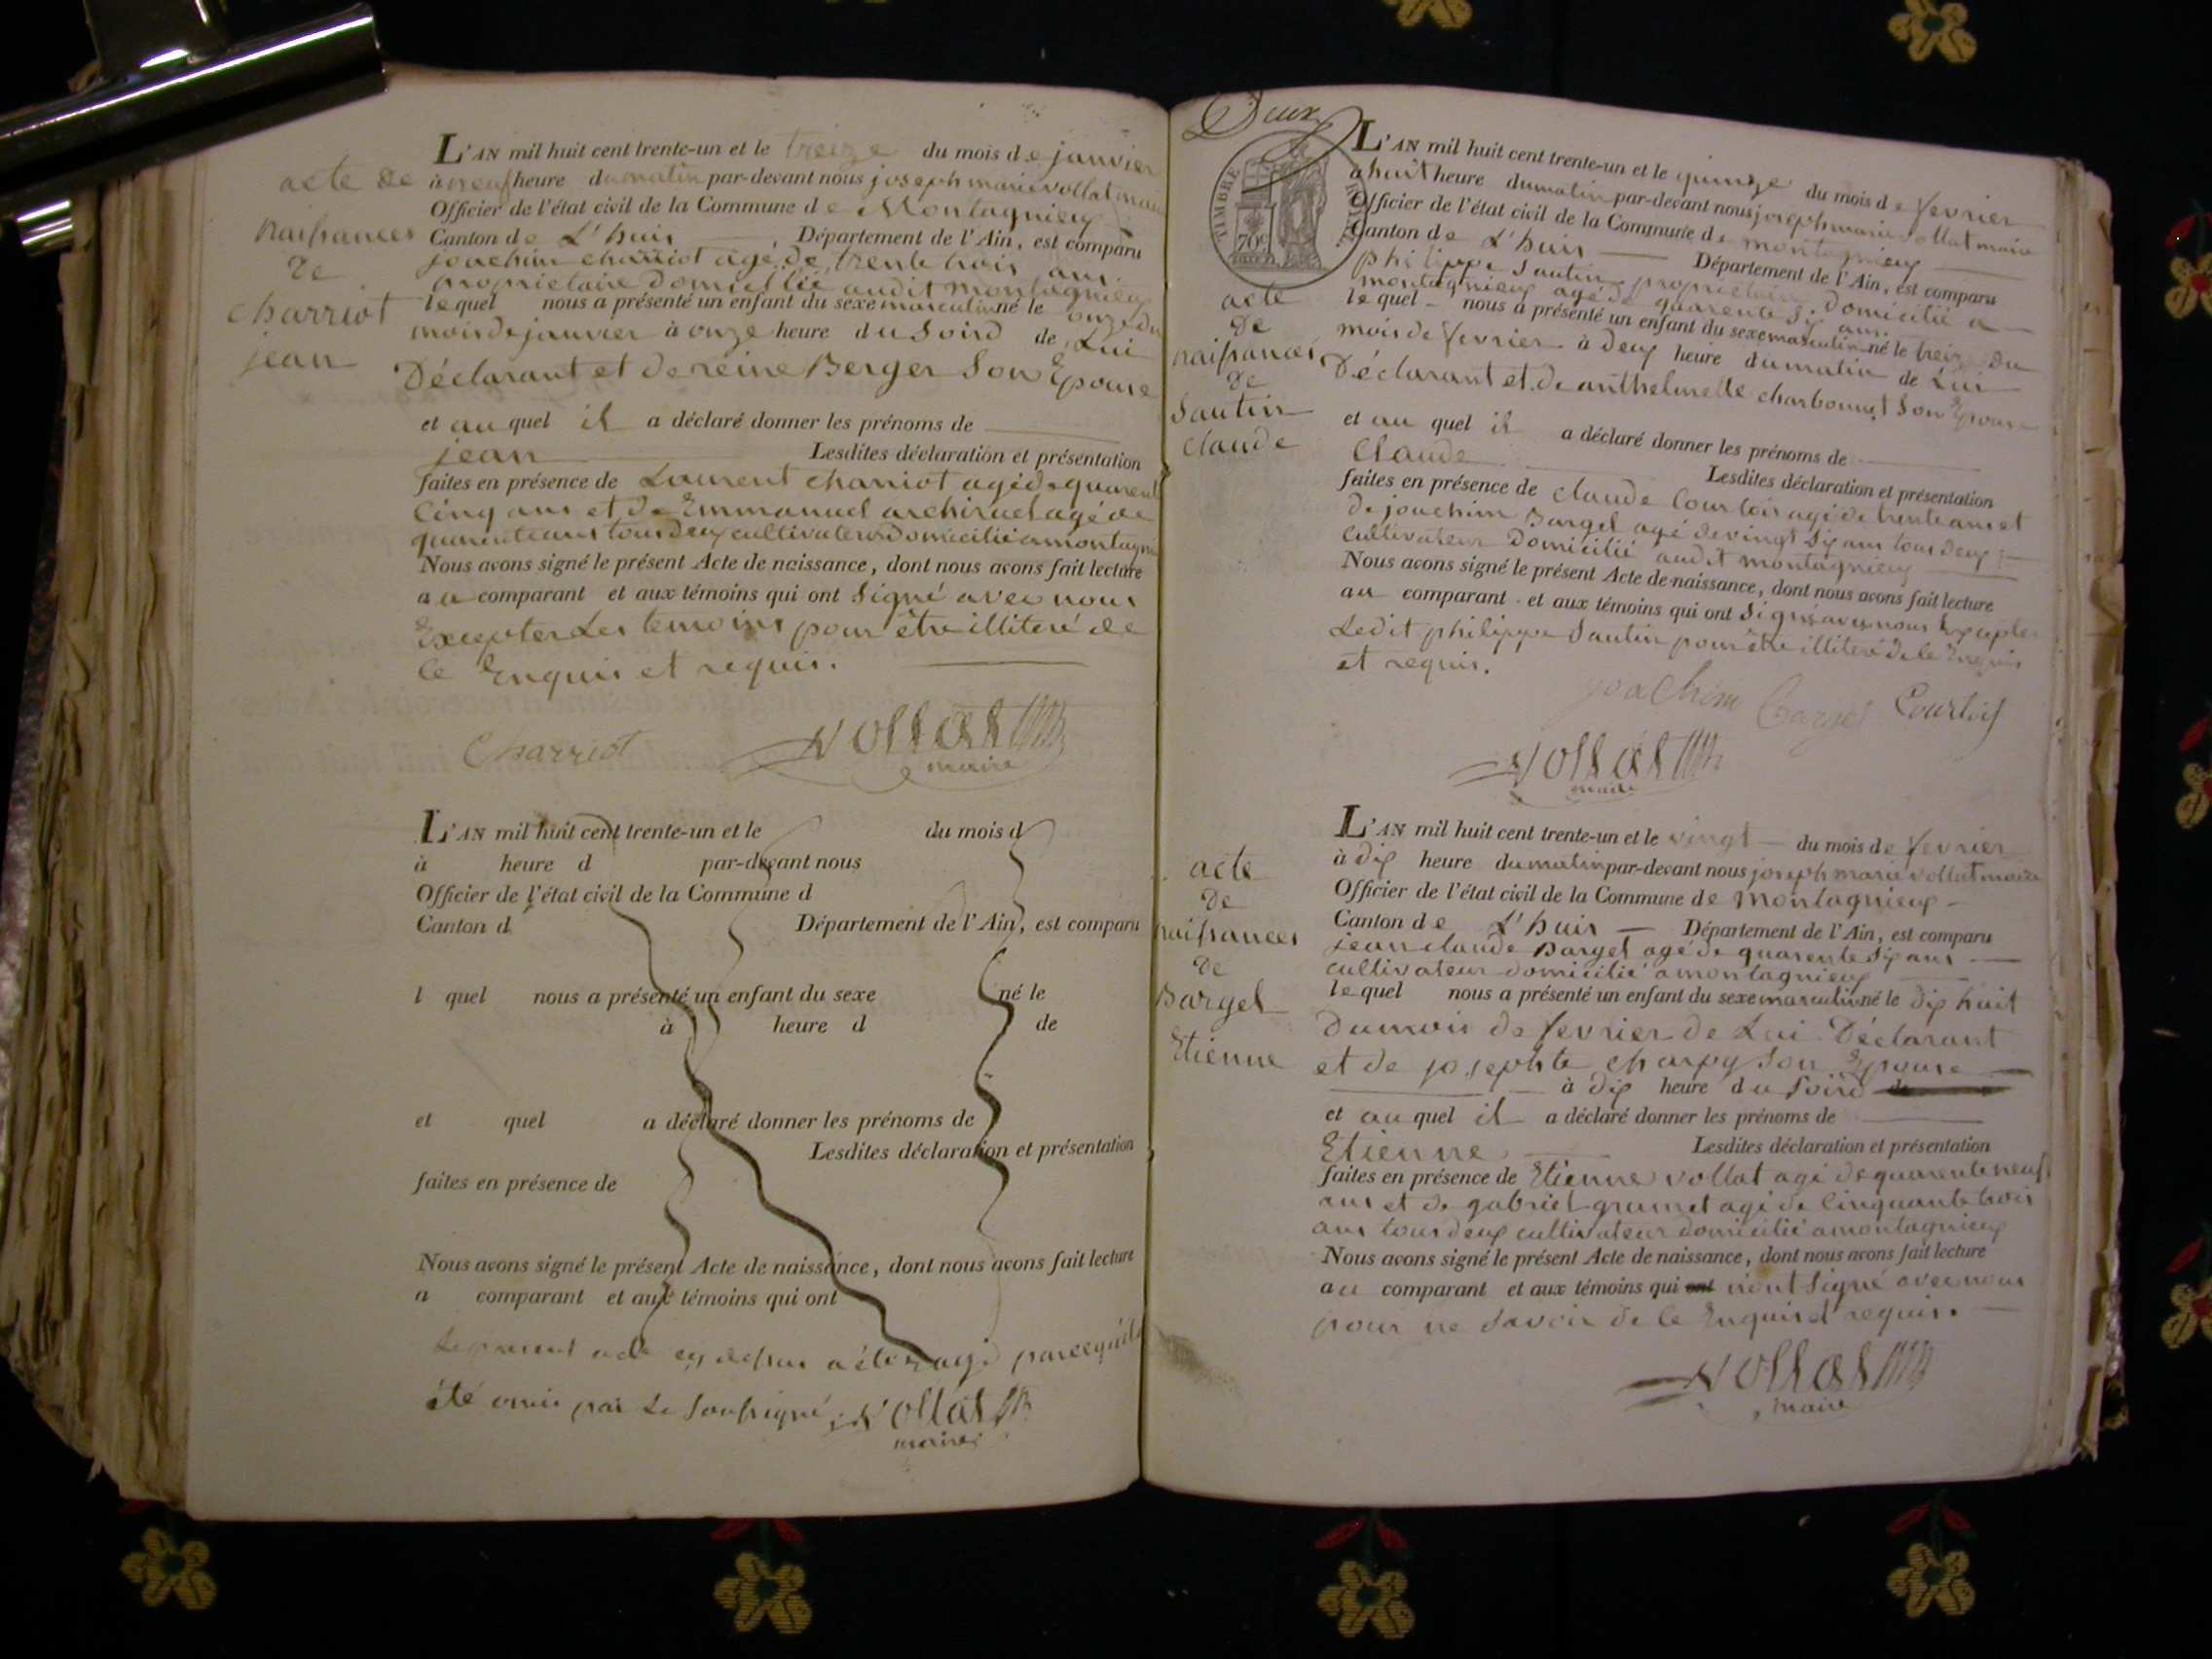 acte de
naissances
de
charriot
jean
L'AN mil huit cent trente-un et le treize du mois de janvier
à neuf heure du matin par-devant nous joseph marie vollat maire
Officier de l'état civil de la Commune de Montagnieu
Canton de L'huis , Département de l'Ain, est comparu
joachim charriot agé de trente trois ans
propriétaire domicilié audit montagnieu
lequel nous a présenté un enfant du sexe masculin né le onze du
mois de janvier à onze heure du soird de Lui
Déclarant et de reine Berger Son Epouse
et au quel il a déclaré donner les prénoms de
jean Lesdites déclaration et présentation
faites en présence de Laurent charriot agé de quarente
Cinq ans et de Emmanuel archirel agé de
quarente ans tous deux cultivateurs domicilié a montagnieu
Nous avons signé le présent Acte de naissance, dont nous avons fait lecture
au comparant et aux témoins qui ont Signé avec nous
Excepter Les temoins pour être illiteré de
Ce Enquis et requis.
Charriot Vollat
maire
L'AN mil huit cent trente-un et le du mois d
à heure d par-devant nous
Officier de l'état civil de la Commune d
Canton d Département de l'Ain, est comparu
l quel nous a présenté un enfant du sexe né le
à heure d de
et quel a déclaré donner les prénoms de
Lesdites déclaration et présentation
faites en présence de
Nous avons signé le présent Acte de naissance, dont nous avons fait lecture
a comparant et aux témoins qui ont
Le present acte cy dessus a été
été omis par Le Soussigné Vollat
maire
Deux
TIMBRE ROYAL
70c
acte
de
naissances
de
Sautin
claude
L'AN mil huit cent trente-un et le quinze du mois de fevrier
à huit heure du matin par-devant nous joseph marie vollat maire
Officier de l'état civil de la Commune de montagnieu
Canton de L'huis Département de l'Ain, est comparu
philippe Sautin propriétaire domicilié a
montagnieu agé de quarente six ans
lequel nous a présenté un enfant du sexe masculin né le treize du
mois de fevrier à deux heure du matin de Lui
Déclarant et de anthelmette charbonnet Son Epouse
et au quel il a déclaré donner les prénoms de
Claude Lesdites déclaration et présentation
faites en présence de claude Courtois agé de trente ans et
de joachim Barget agé de vingt six ans tous deux
Cultivateur Domicilié audit montagnieu
Nous avons signé le présent Acte de naissance, dont nous avons fait lecture
au comparant et aux témoins qui ont Signés avec nous Excepter
Ledit philippe Sautin pour être illiteré de Ce Enquis
et requis.
joachim Barget Courtois
Vollat
maire
acte
de
naissances
de
Barget
Etienne
L'AN mil huit cent trente-un et le vingt du mois de fevrier
à dix heure du matin par-devant nous joseph marie vollat maire
Officier de l'état civil de la Commune de montagnieu
Canton de L'huis Département de l'Ain, est comparu
jean claude Barget agé de quarente six ans
cultivateur domicilié a montagnieu
lequel nous a présenté un enfant du sexe masculin né le dix huit
du mois de fevrier de Lui Déclarant
et de josephte charpy Son Epouse
à dix heure du Soird de
et au quel il a déclaré donner les prénoms de
Etienne Lesdites déclaration et présentation
faites en présence de Etienne vollat agé de quarente neuf
ans et de gabriel grumet agé de Cinquante trois
ans tous deux cultivateur domicilié a montagnieu
Nous avons signé le présent Acte de naissance, dont nous avons fait lecture
au comparant et aux témoins qui ont n'ont Signé avec nous
pour ne Savoir de Ce Enquis et requis.
Vollat
maire